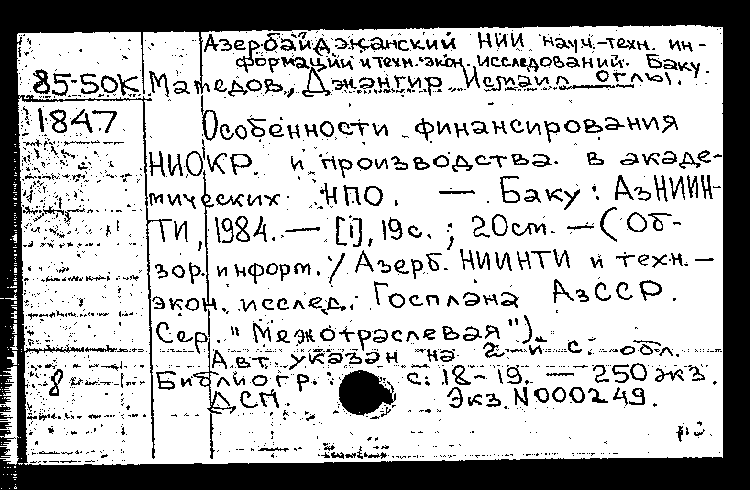 Азербайджанский НИИ науч.-техн. ин-
формации и техн.-экон. исследований. Баку.
85-50К Мамедов, Джангир Исмаил оглы.
1847 Особенности финансирования
НИОКР и производства в акаде-
мических НПО. — Баку: АзНИИН-
ТИ, 1984. — [i], 19с.; 20см. — (Об-
зор. информ. / Азерб. НИИНТИ и техн.-
экон. исслед. Госплана АзССР.
Сер. "Межотраслевая").
Авт. указан на 2-й с. обл.
8 Библиогр.: с. 18-19. — 250 экз.
ДСП. Экз. N000249.